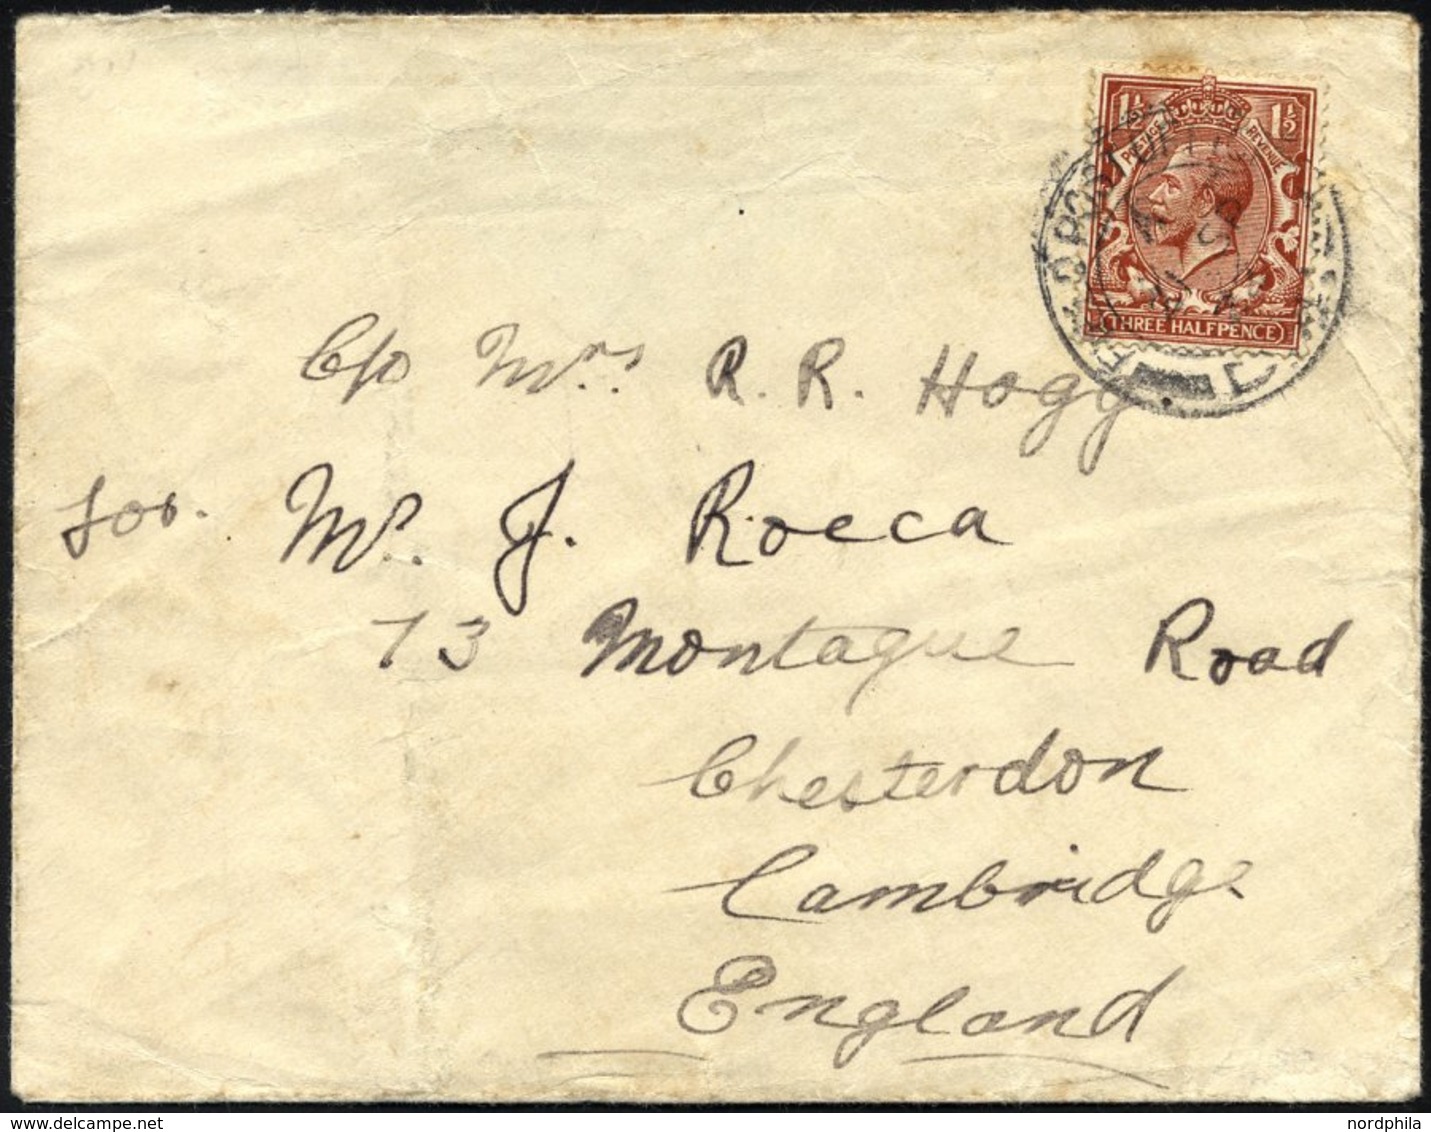 1½ 1½
POSTAGE REVENUE
THREE HALFPENCE
POST OFFICE
C/o Mrs R. R. Hogg.
for. Mr. J. Rocca
73 Montague Road
Chesterdon
Cambridge
England
delcampe.net
nordphila